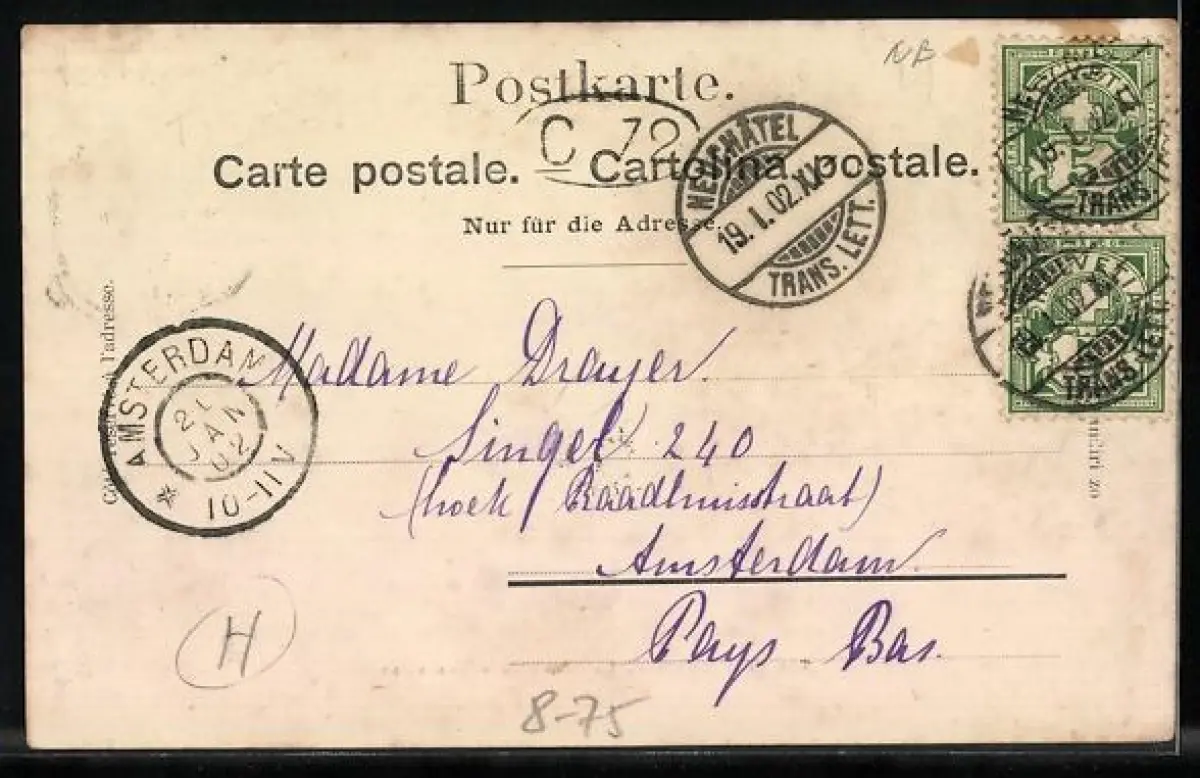 NB
Postkarte.
C 72
Carte postale. — Cartolina postale.
Nur für die Adresse.
NEUCHÂTEL
19. I. 02. XI
TRANS. LETT.
TRANS.
TRANS. LETT.
l'adresse.
AMSTERDAM
21
JAN
02
10-11V
Madame Drayer.
Singel 240
(hoek Raadhuisstraat)
Amsterdam
Pays Bas.
H
8-75